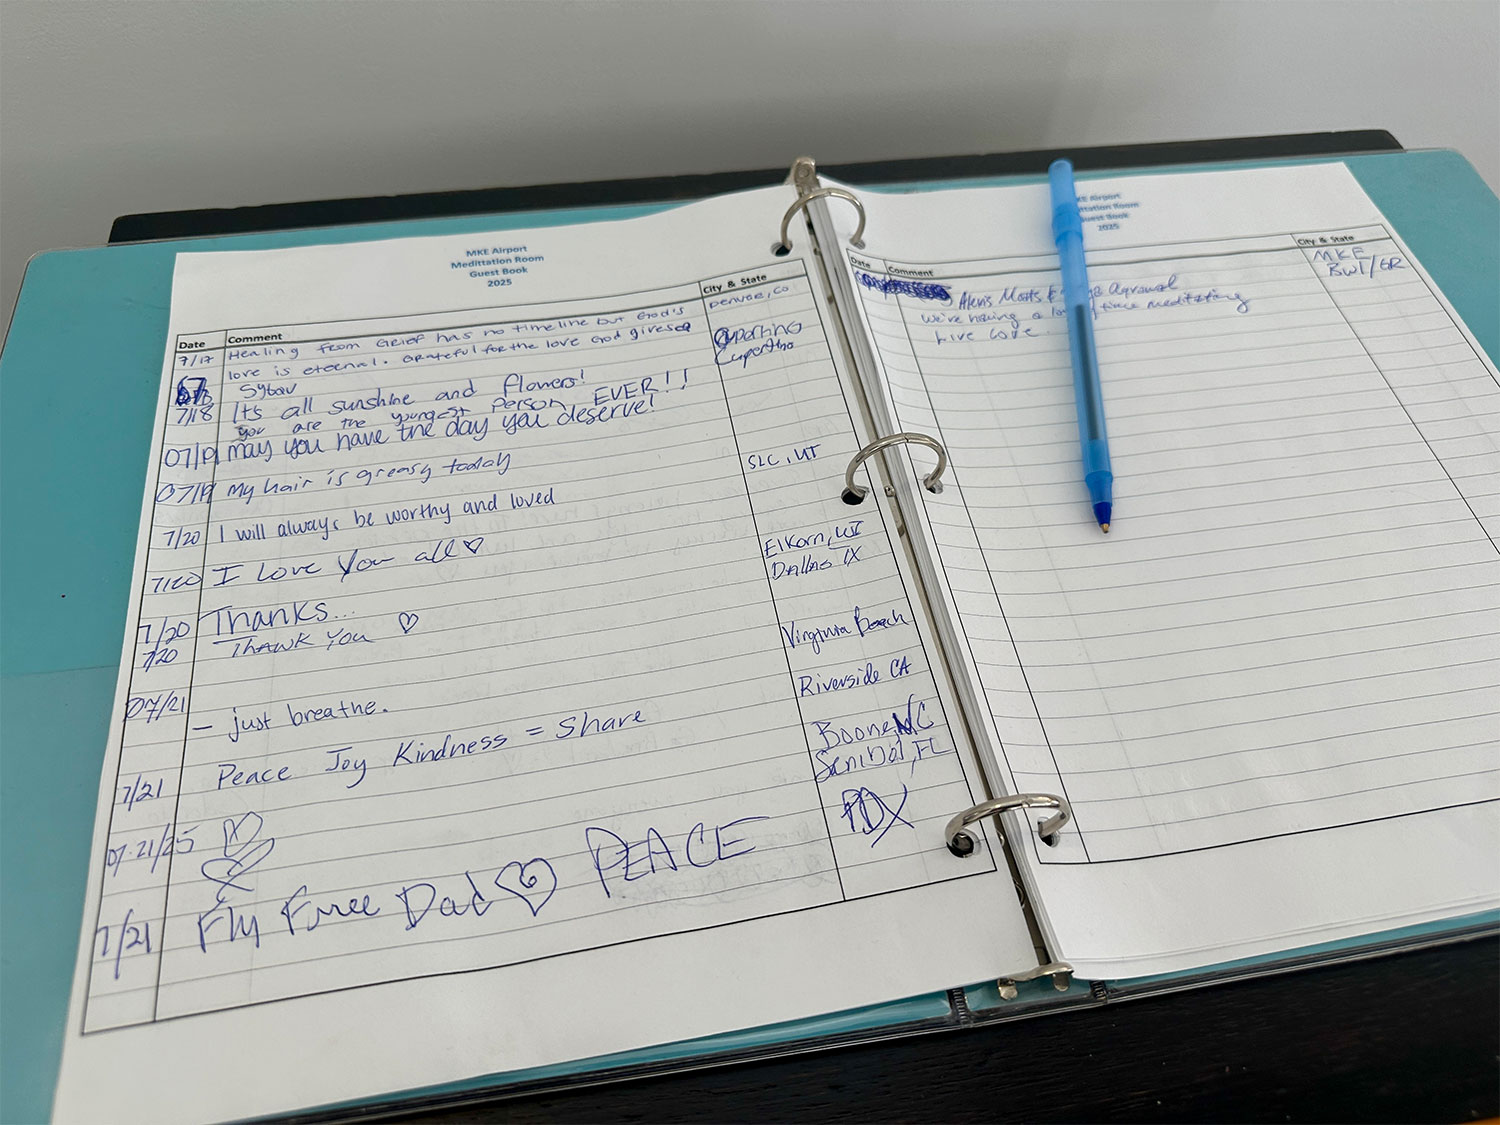 MKE Airport
Medittation Room
Guest Book
2025
Date Comment City & State
7/17 Healing from Grief has no timeline but God's Denver, CO
love is eternal. Grateful for the love God gives
67 Sybau Cupertino
7/18 It's all sunshine and flowers! Cupertino
You are the youngest person EVER!!
07/19 may you have the day you deserve!
07/19 My hair is greasy today SLC, UT
7/20 I will always be worthy and loved
7/20 I Love You all ♡ Elkorn, WI
Dallas TX
7/20 Thanks...
7/20 Thank You ♡ Virginia Beach
07/21 – just breathe. Riverside CA
7/21 Peace Joy Kindness = Share Boone, NC
07.21/25 Sanibel, FL
7/21 Fly Free Dad ♡ PEACE PDX
KE Airport
ittation Room
Guest Book
2025
Date Comment City & State
Alexis Agrawal MKE
We're having a time meditating BWI/GR
Live Love